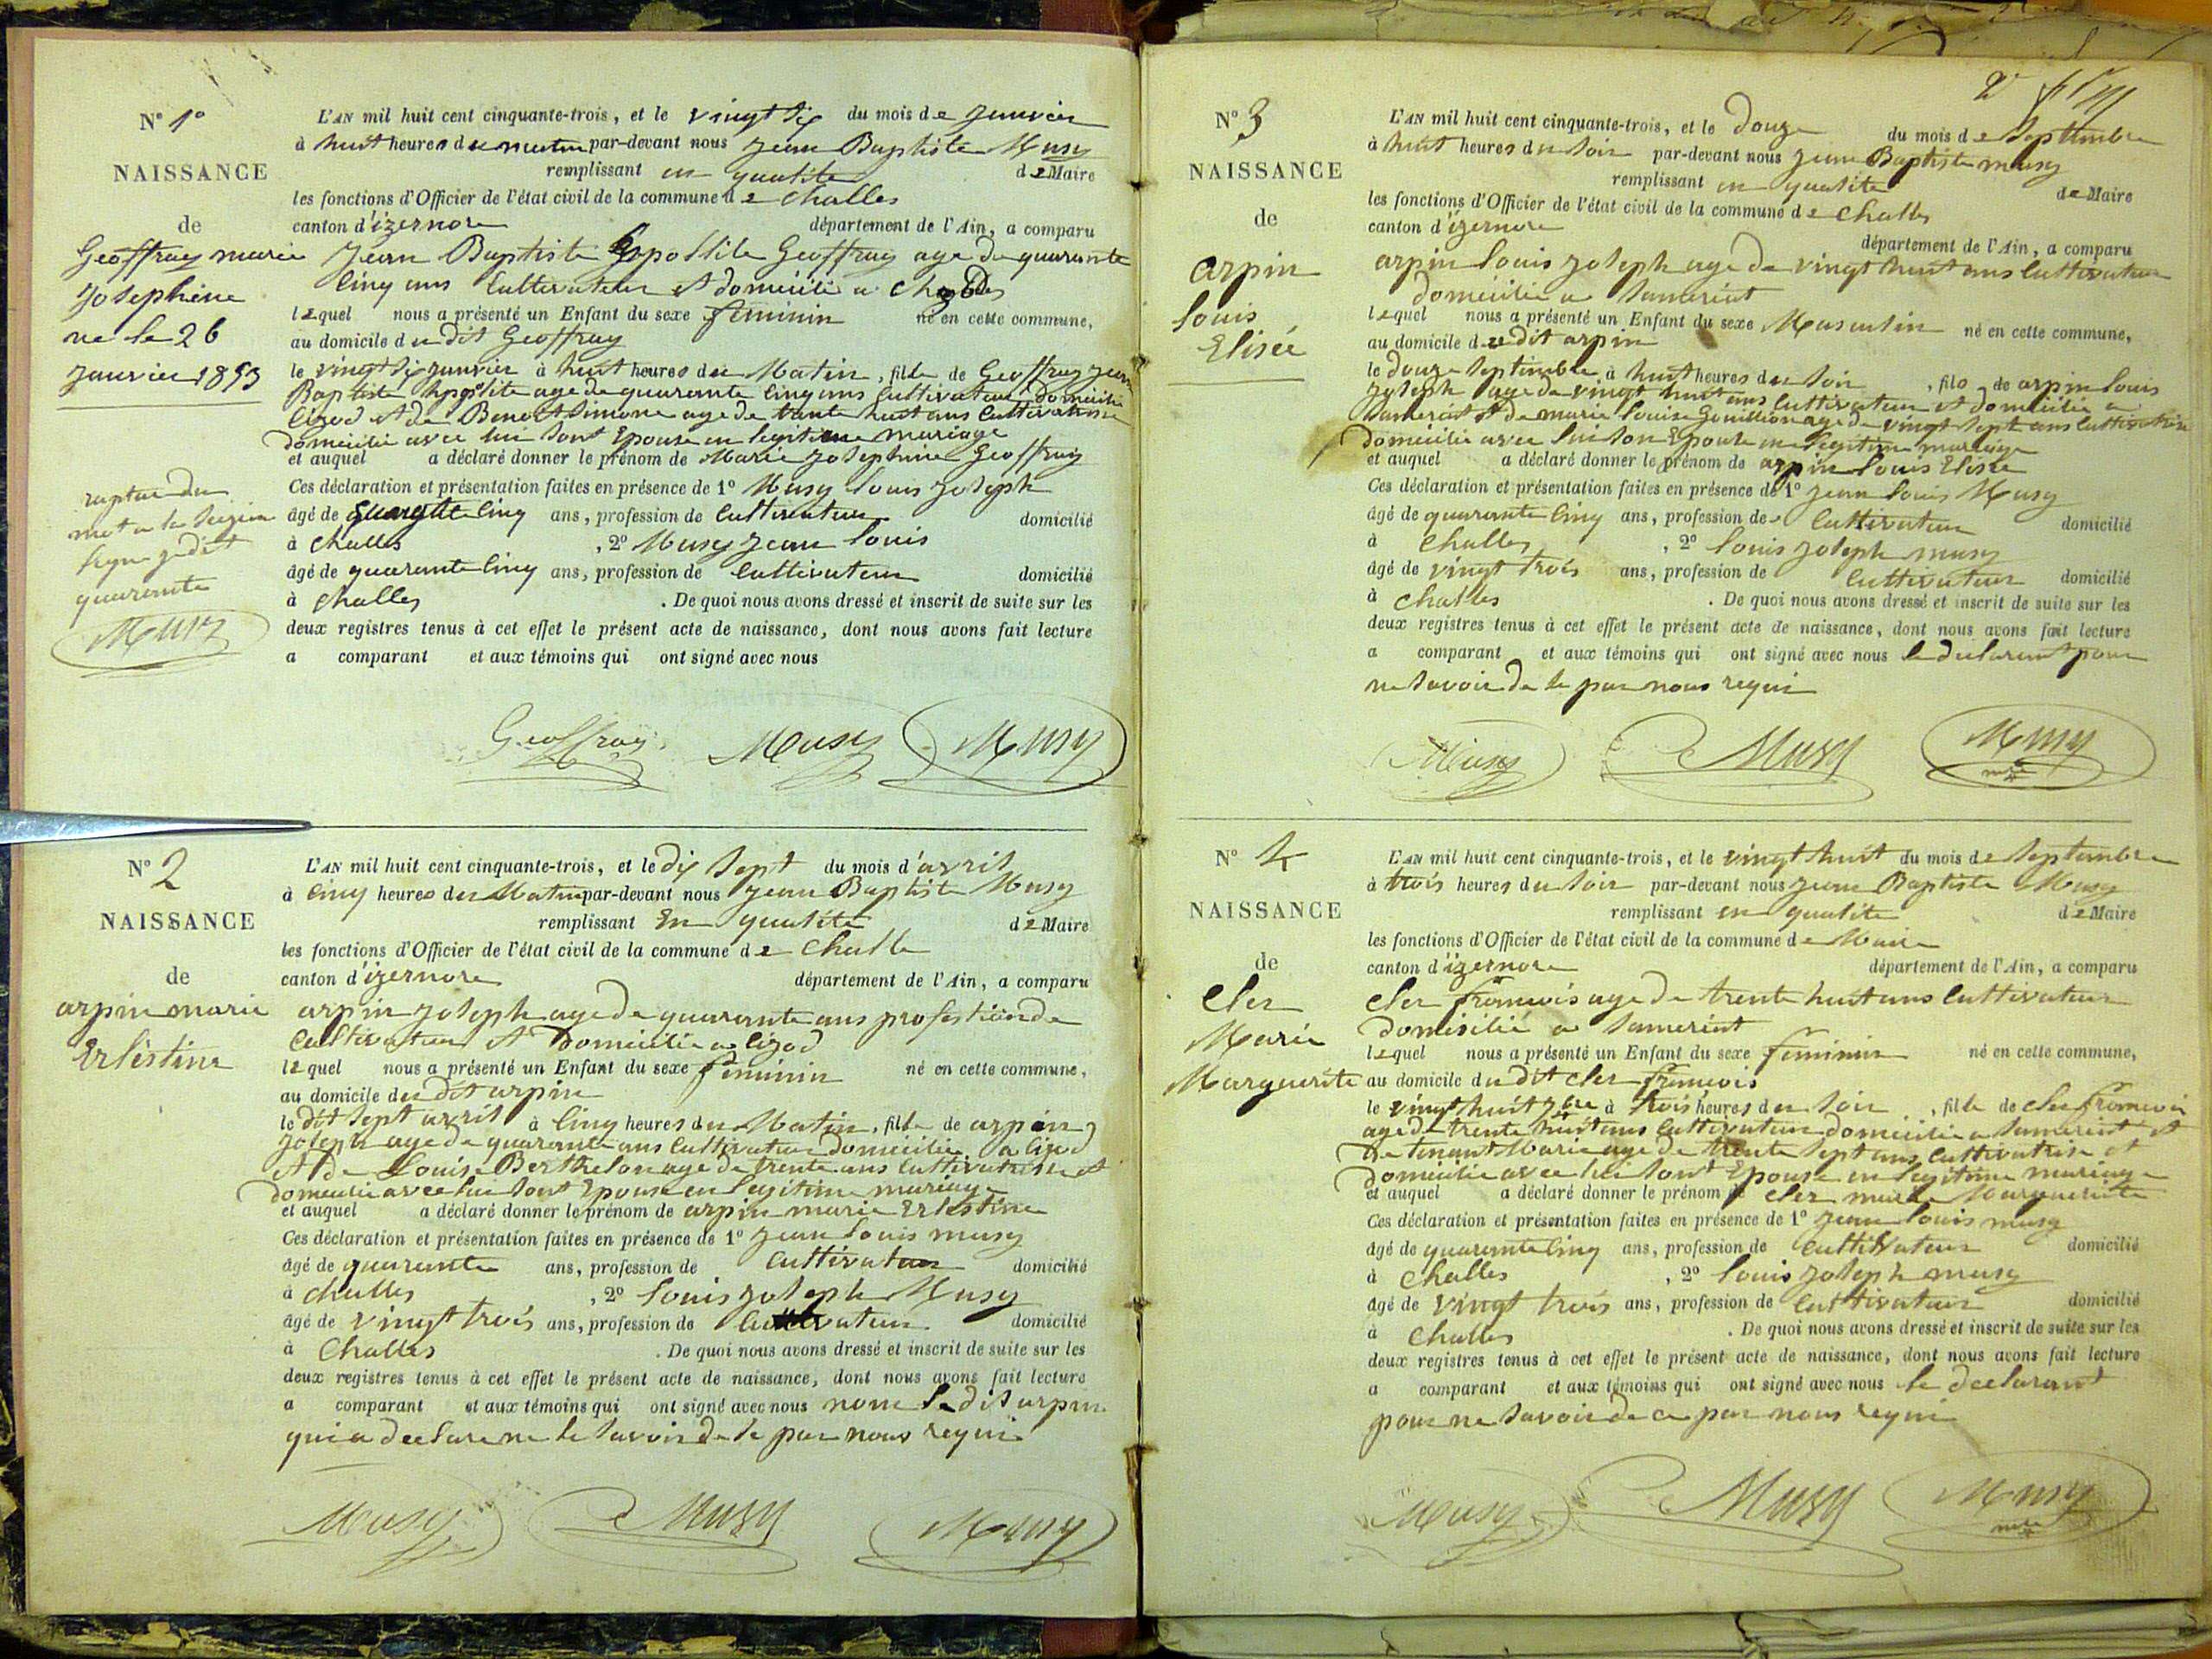 N° 1°
NAISSANCE
de
Geoffray marie
Josephine
ne le 26
Janvier 1853
L'AN mil huit cent cinquante-trois, et le vingt six du mois de Janvier
à huit heures du matin par-devant nous Jean Baptiste Musy
remplissant en qualite de Maire
les fonctions d'Officier de l'état civil de la commune de Challes
canton d'izernore département de l'Ain, a comparu
Jean Baptiste hyppolite Geoffray age de quarante
cinq ans Cultivateur et domicilié a
lequel nous a présenté un Enfant du sexe feminin né en cette commune,
au domicile du dit Geoffray
le vingt six janvier à huit heures du Matin, fille de Geoffray Jean
Baptiste hppolite age de quarante cinq ans Cultivateur domicilié
Cizod et de Benoit Simone age de trente huit ans Cultivatrisse
domicilié avec lui sont Epouse en legitime mariage
et auquel a déclaré donner le prénom de Marie Josephine Geoffray
Ces déclaration et présentation faites en présence de 1° Musy Louis Joseph
âgé de cinq ans, profession de Cultivateur domicilié
à Challes , 2° Musy Jean Louis
âgé de quarante cinq ans, profession de Cultivateur domicilié
à Challes . De quoi nous avons dressé et inscrit de suite sur les
deux registres tenus à cet effet le présent acte de naissance, dont nous avons fait lecture
a comparant et aux témoins qui ont signé avec nous
mot a la
quarante
Musy
Geoffray Musy Musy
N° 2
NAISSANCE
de
arpin marie
Erlestine
L'AN mil huit cent cinquante-trois, et le dix sept du mois d'avril
à cinq heures du Matin par-devant nous Jean Baptiste Musy
remplissant En qualité de Maire
les fonctions d'Officier de l'état civil de la commune de Challe
canton d'izernore département de l'Ain, a comparu
arpin Joseph age de quarante ans profession de
Cultivateur et Domicilié a Cizod
lequel nous a présenté un Enfant du sexe feminin né en cette commune,
au domicile du dit arpin
le dit sept avril à cinq heures du Matin, fille de arpin
Joseph age de quarante ans Cultivateur domicilié a Cizod
et de Louise Berthelon age de trente ans Cultivatrisse et
domicilié avec lui sont Epouse en legitime mariage
et auquel a déclaré donner le prénom de arpin marie Erlestine
Ces déclaration et présentation faites en présence de 1° Jean Louis musy
âgé de quarante ans, profession de Cultivateur domicilié
à challes , 2° Louis Joseph Musy
âgé de vingt trois ans, profession de Cultivateur domicilié
à Challes . De quoi nous avons dressé et inscrit de suite sur les
deux registres tenus à cet effet le présent acte de naissance, dont nous avons fait lecture
a comparant et aux témoins qui ont signé avec nous nom le dit arpin
qui a declare ne le savoir de se par nous requi
Musy Musy Musy
N° 3
NAISSANCE
de
arpin
Louis
Elisée
L'AN mil huit cent cinquante-trois, et le Douze du mois de Septembre
à huit heures du soir par-devant nous Jean Baptiste musy
remplissant en qualite de Maire
les fonctions d'Officier de l'état civil de la commune de Challes
canton d'izernore département de l'Ain, a comparu
arpin Louis Joseph age de vingt huit ans Cultivateur
domicilié a Samerint
lequel nous a présenté un Enfant du sexe Masculin né en cette commune,
au domicile du dit arpin
le douze Septembre à huit heures du soir, fils de arpin Louis
Joseph age de vingt huit ans Cultivateur et domicilié a
Samerint et de marie Louise Gouillion age de vingt sept ans Cultivatrise
domicilié avec lui son Epouse en legitime mariage
et auquel a déclaré donner le prénom de arpin Louis Elisée
Ces déclaration et présentation faites en présence de 1° Jean Louis Musy
âgé de quarante cinq ans, profession de Cultivateur domicilié
à Challes , 2° Louis Joseph musy
âgé de vingt trois ans, profession de Cultivateur domicilié
à Challes . De quoi nous avons dressé et inscrit de suite sur les
deux registres tenus à cet effet le présent acte de naissance, dont nous avons fait lecture
a comparant et aux témoins qui ont signé avec nous le declarant pour
ne savoir de se par nous requi
Musy Musy Musy
N° 4
NAISSANCE
de
Cler
Marie
Marguerite
L'AN mil huit cent cinquante-trois, et le vingt huit du mois de Septembre
à trois heures du soir par-devant nous Jean Baptiste Musy
remplissant en qualite de Maire
les fonctions d'Officier de l'état civil de la commune de Maire
canton d'izernore département de l'Ain, a comparu
Cler francois age de trente huit ans Cultivateur
domisilié a Samerint
lequel nous a présenté un Enfant du sexe feminin né en cette commune,
au domicile du dit Cler francois
le vingt huit 7bre à trois heures du soir, fille de Cler francois
age de trente huit ans Cultivateur domicilié a Samerint et
de tenant Marie age de trente sept ans Cultivatrise et
domicilié avec lui sont Epouse en legitime mariage
et auquel a déclaré donner le prénom de Cler marie Marguerite
Ces déclaration et présentation faites en présence de 1° Jean Louis musy
âgé de quarante cinq ans, profession de Cultivateur domicilié
à Challes , 2° Louis Joseph musy
âgé de vingt trois ans, profession de Cultivateur domicilié
à Challes . De quoi nous avons dressé et inscrit de suite sur les
deux registres tenus à cet effet le présent acte de naissance, dont nous avons fait lecture
a comparant et aux témoins qui ont signé avec nous le declarant
pour ne savoir de ce par nous requi
Musy Musy Musy